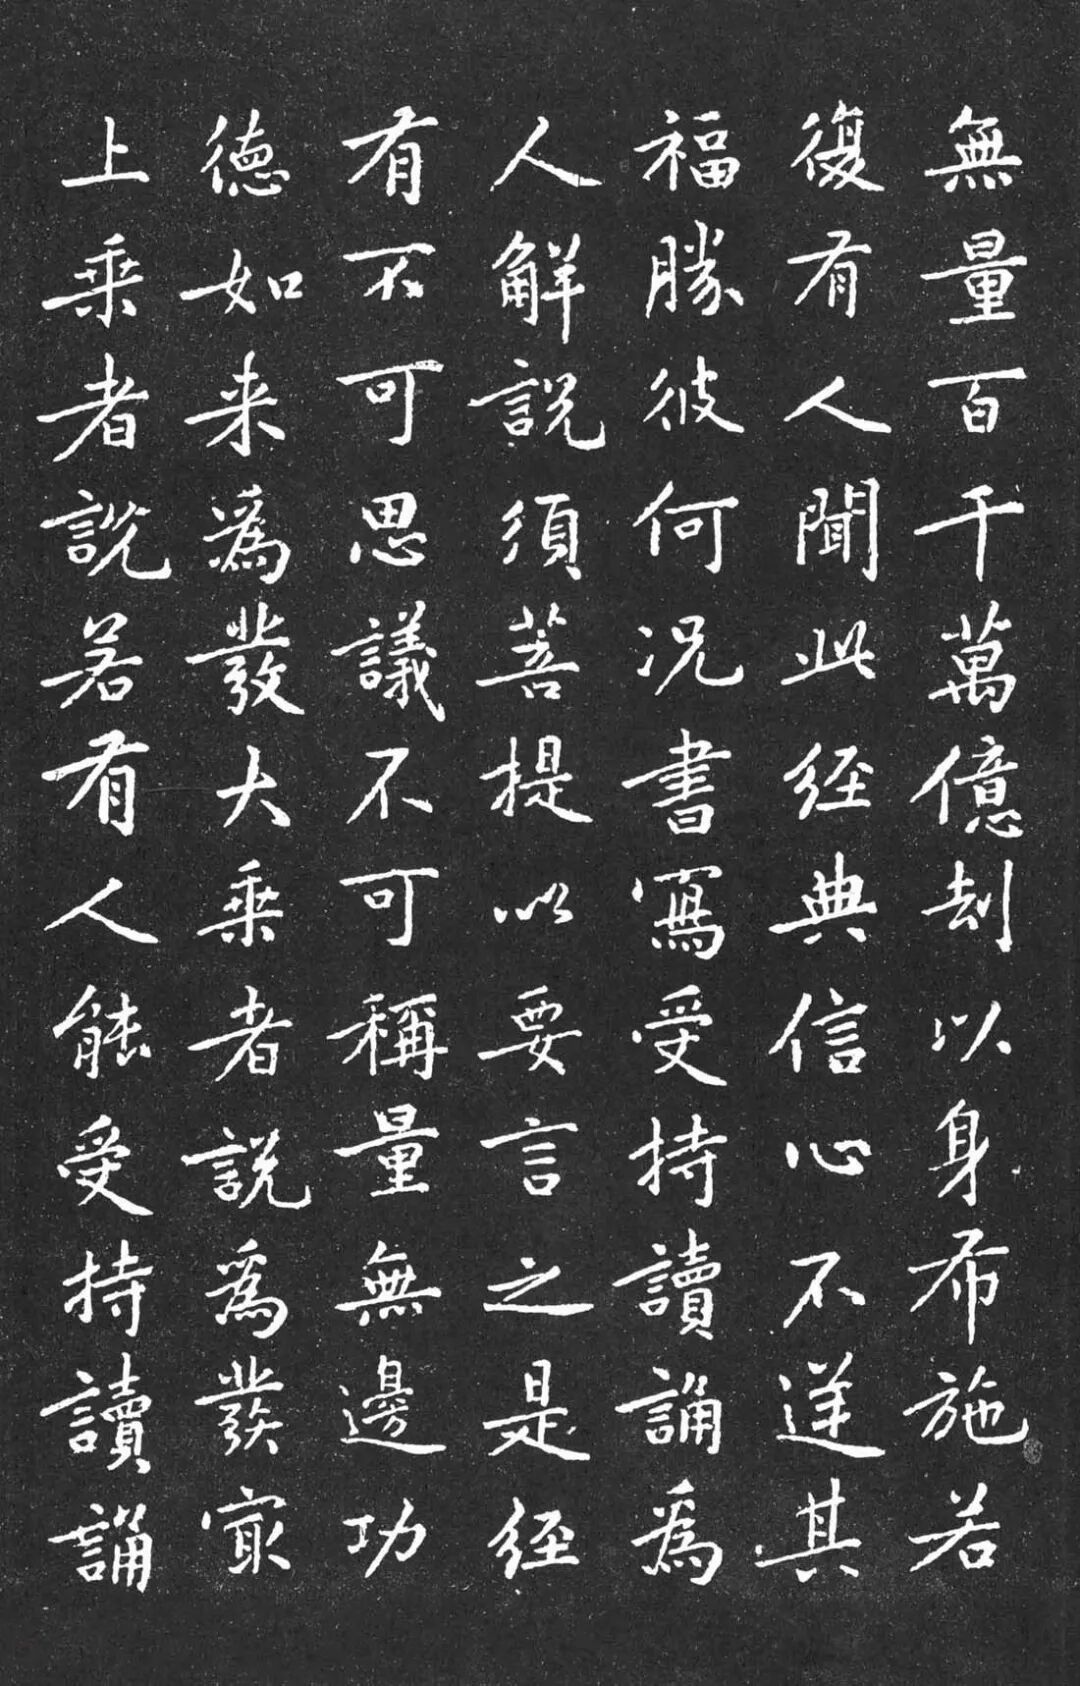 無量百千萬億刧以身布施若
復有人聞此經典信心不逆其
福勝彼何況書寫受持讀誦為
人解說須菩提以要言之是經
有不可思議不可稱量無邊功
德如来為發大乘者說為發冣
上乘者說若有人能受持讀誦